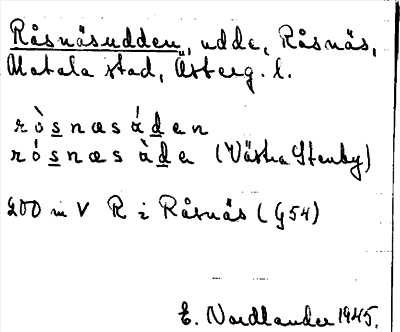 Råsnäsudden, udde, Råsnäs,
Motala stad, Österg. l.
rò s n æ s á d e n
ró s n æ s à d e (Västra Stenby)
200 m V R i Råsnäs (G54)
E. Nordlander 1945.